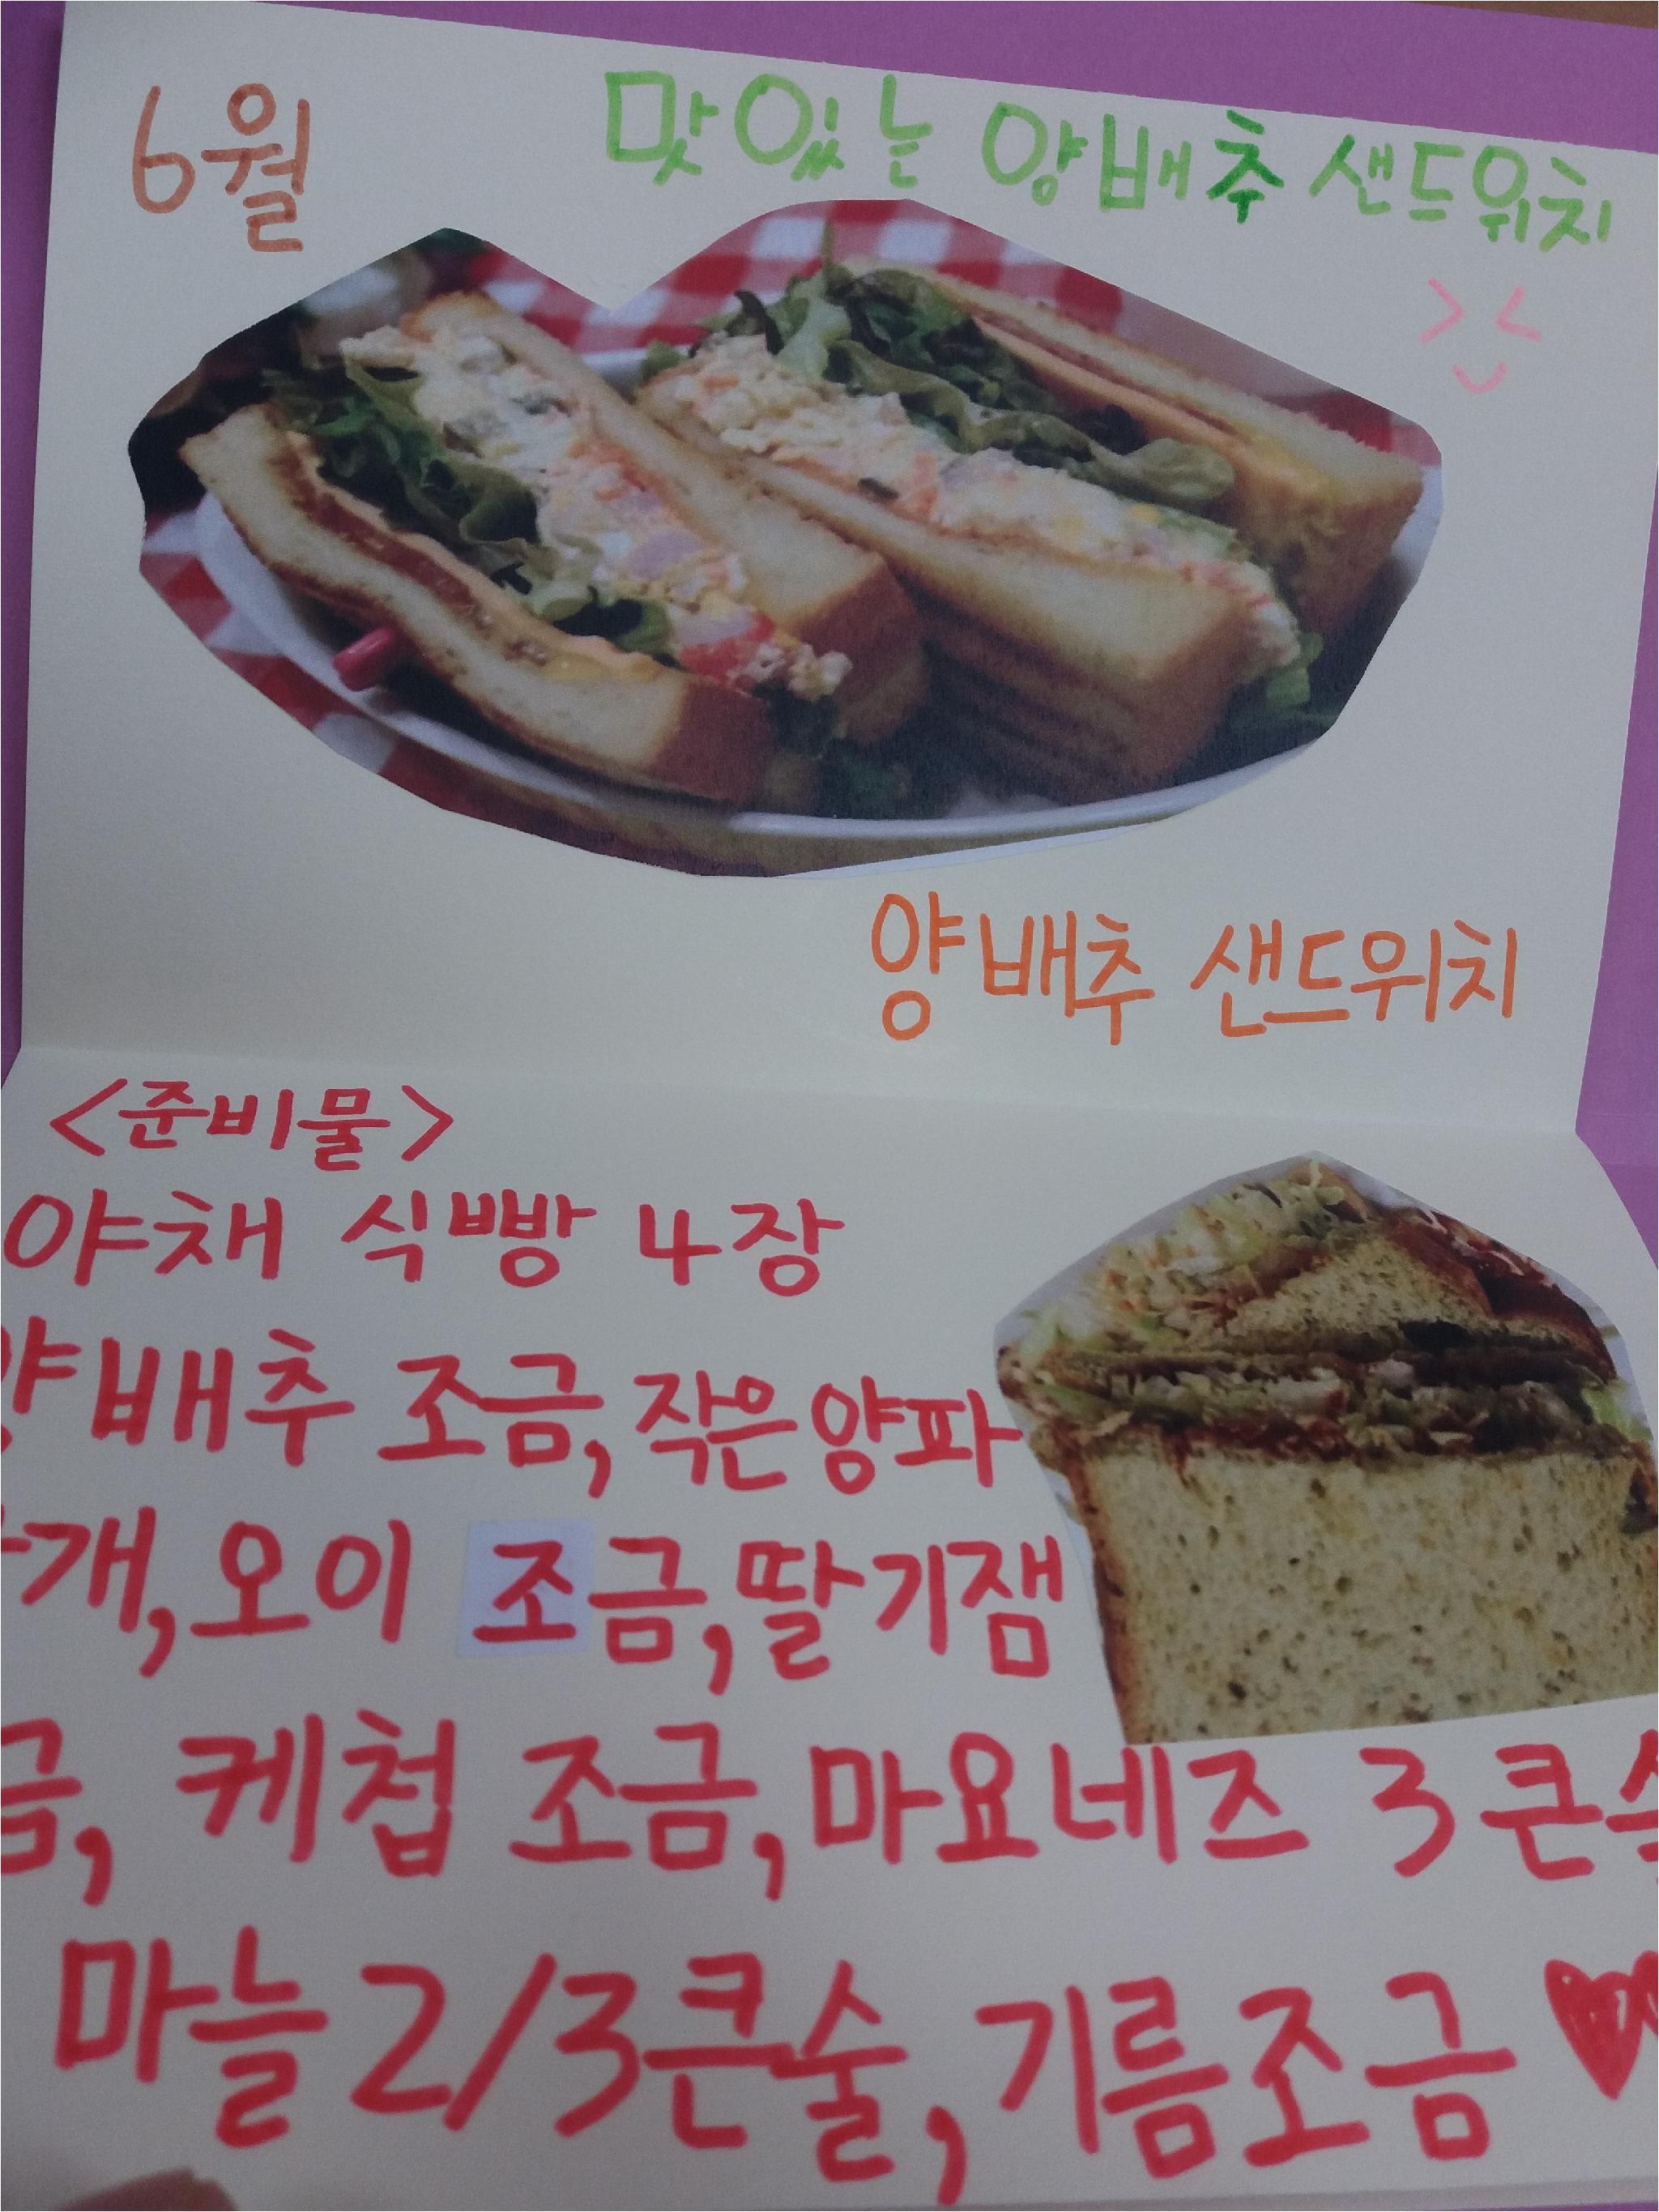 6월
맛있는 양배추 샌드위치
양배추 샌드위치
<준비물>
야채 식빵 4장
양배추 조금, 작은 양파
개, 오이 조금, 딸기잼
금, 케첩 조금, 마요네즈 3큰
마늘 2/3큰술, 기름조금